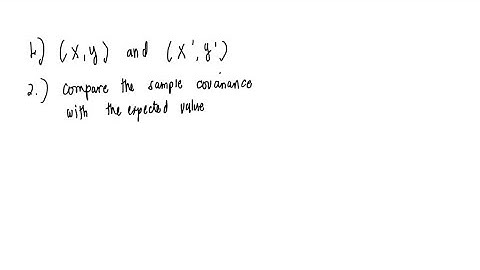 1.) (x, y) and (x', y')
2.) compare the sample covariance
with the expected value